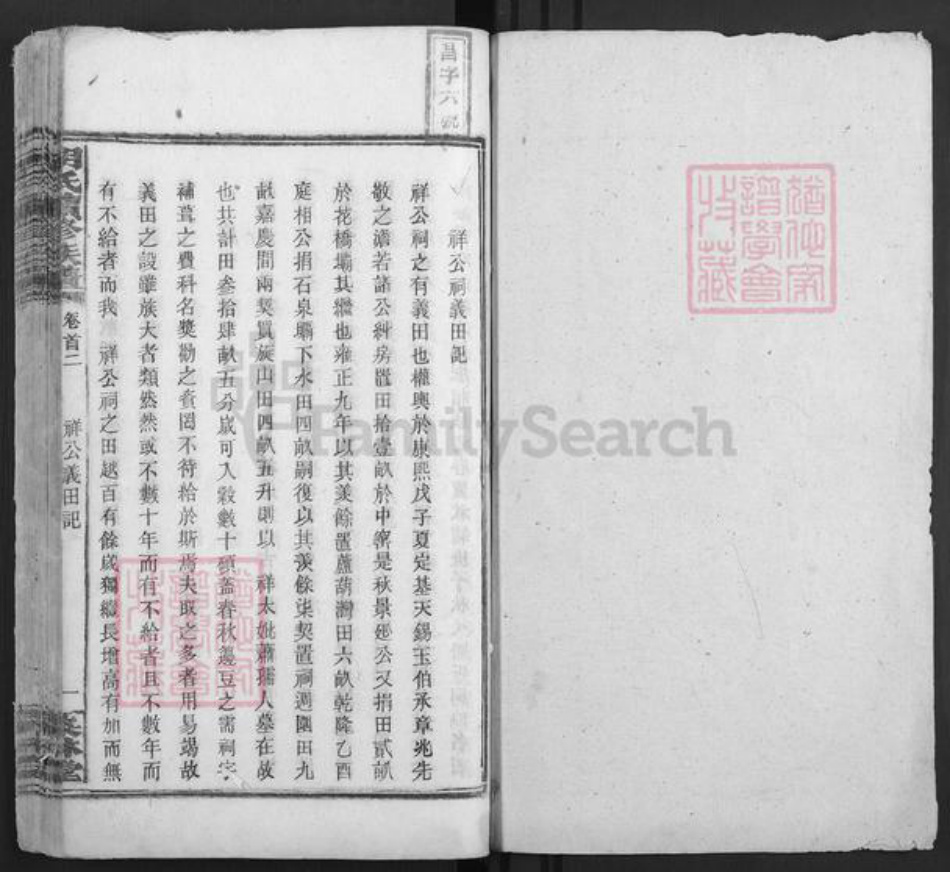 昌字六號
祥公祠義田記
祥公祠之有義田也權輿於康熙戊子夏定基天錫玉伯承章兆先
敬之濟若諸公糾房置田拾壹畝於中窰是秋景廷公又捐田貳畝
於花橋壩其繼也雍正九年以其羨餘置蘆葫灣田六畝乾隆乙酉
庭相公捐石泉壩下水田四畝嗣復以其羨餘柒契置祠週圍田九
畝嘉慶間兩契買旋山田四畝五升則以 祥太妣蕭孺人墓在故
也共計田叁拾肆畝五分歲可入穀數十碩蓋春秋籩豆之需祠宇
補葺之費科名獎勸之資罔不待給於斯焉夫取之多者用易竭故
義田之設雖族大者類然然或不數十年而有不給者且不數年而
有不給者而我 祥公祠之田越百有餘歲獨繼長增高有加而無
氏 修族譜
卷首二
祥公義田記
一
堂
FamilySearch
譜學會
收藏